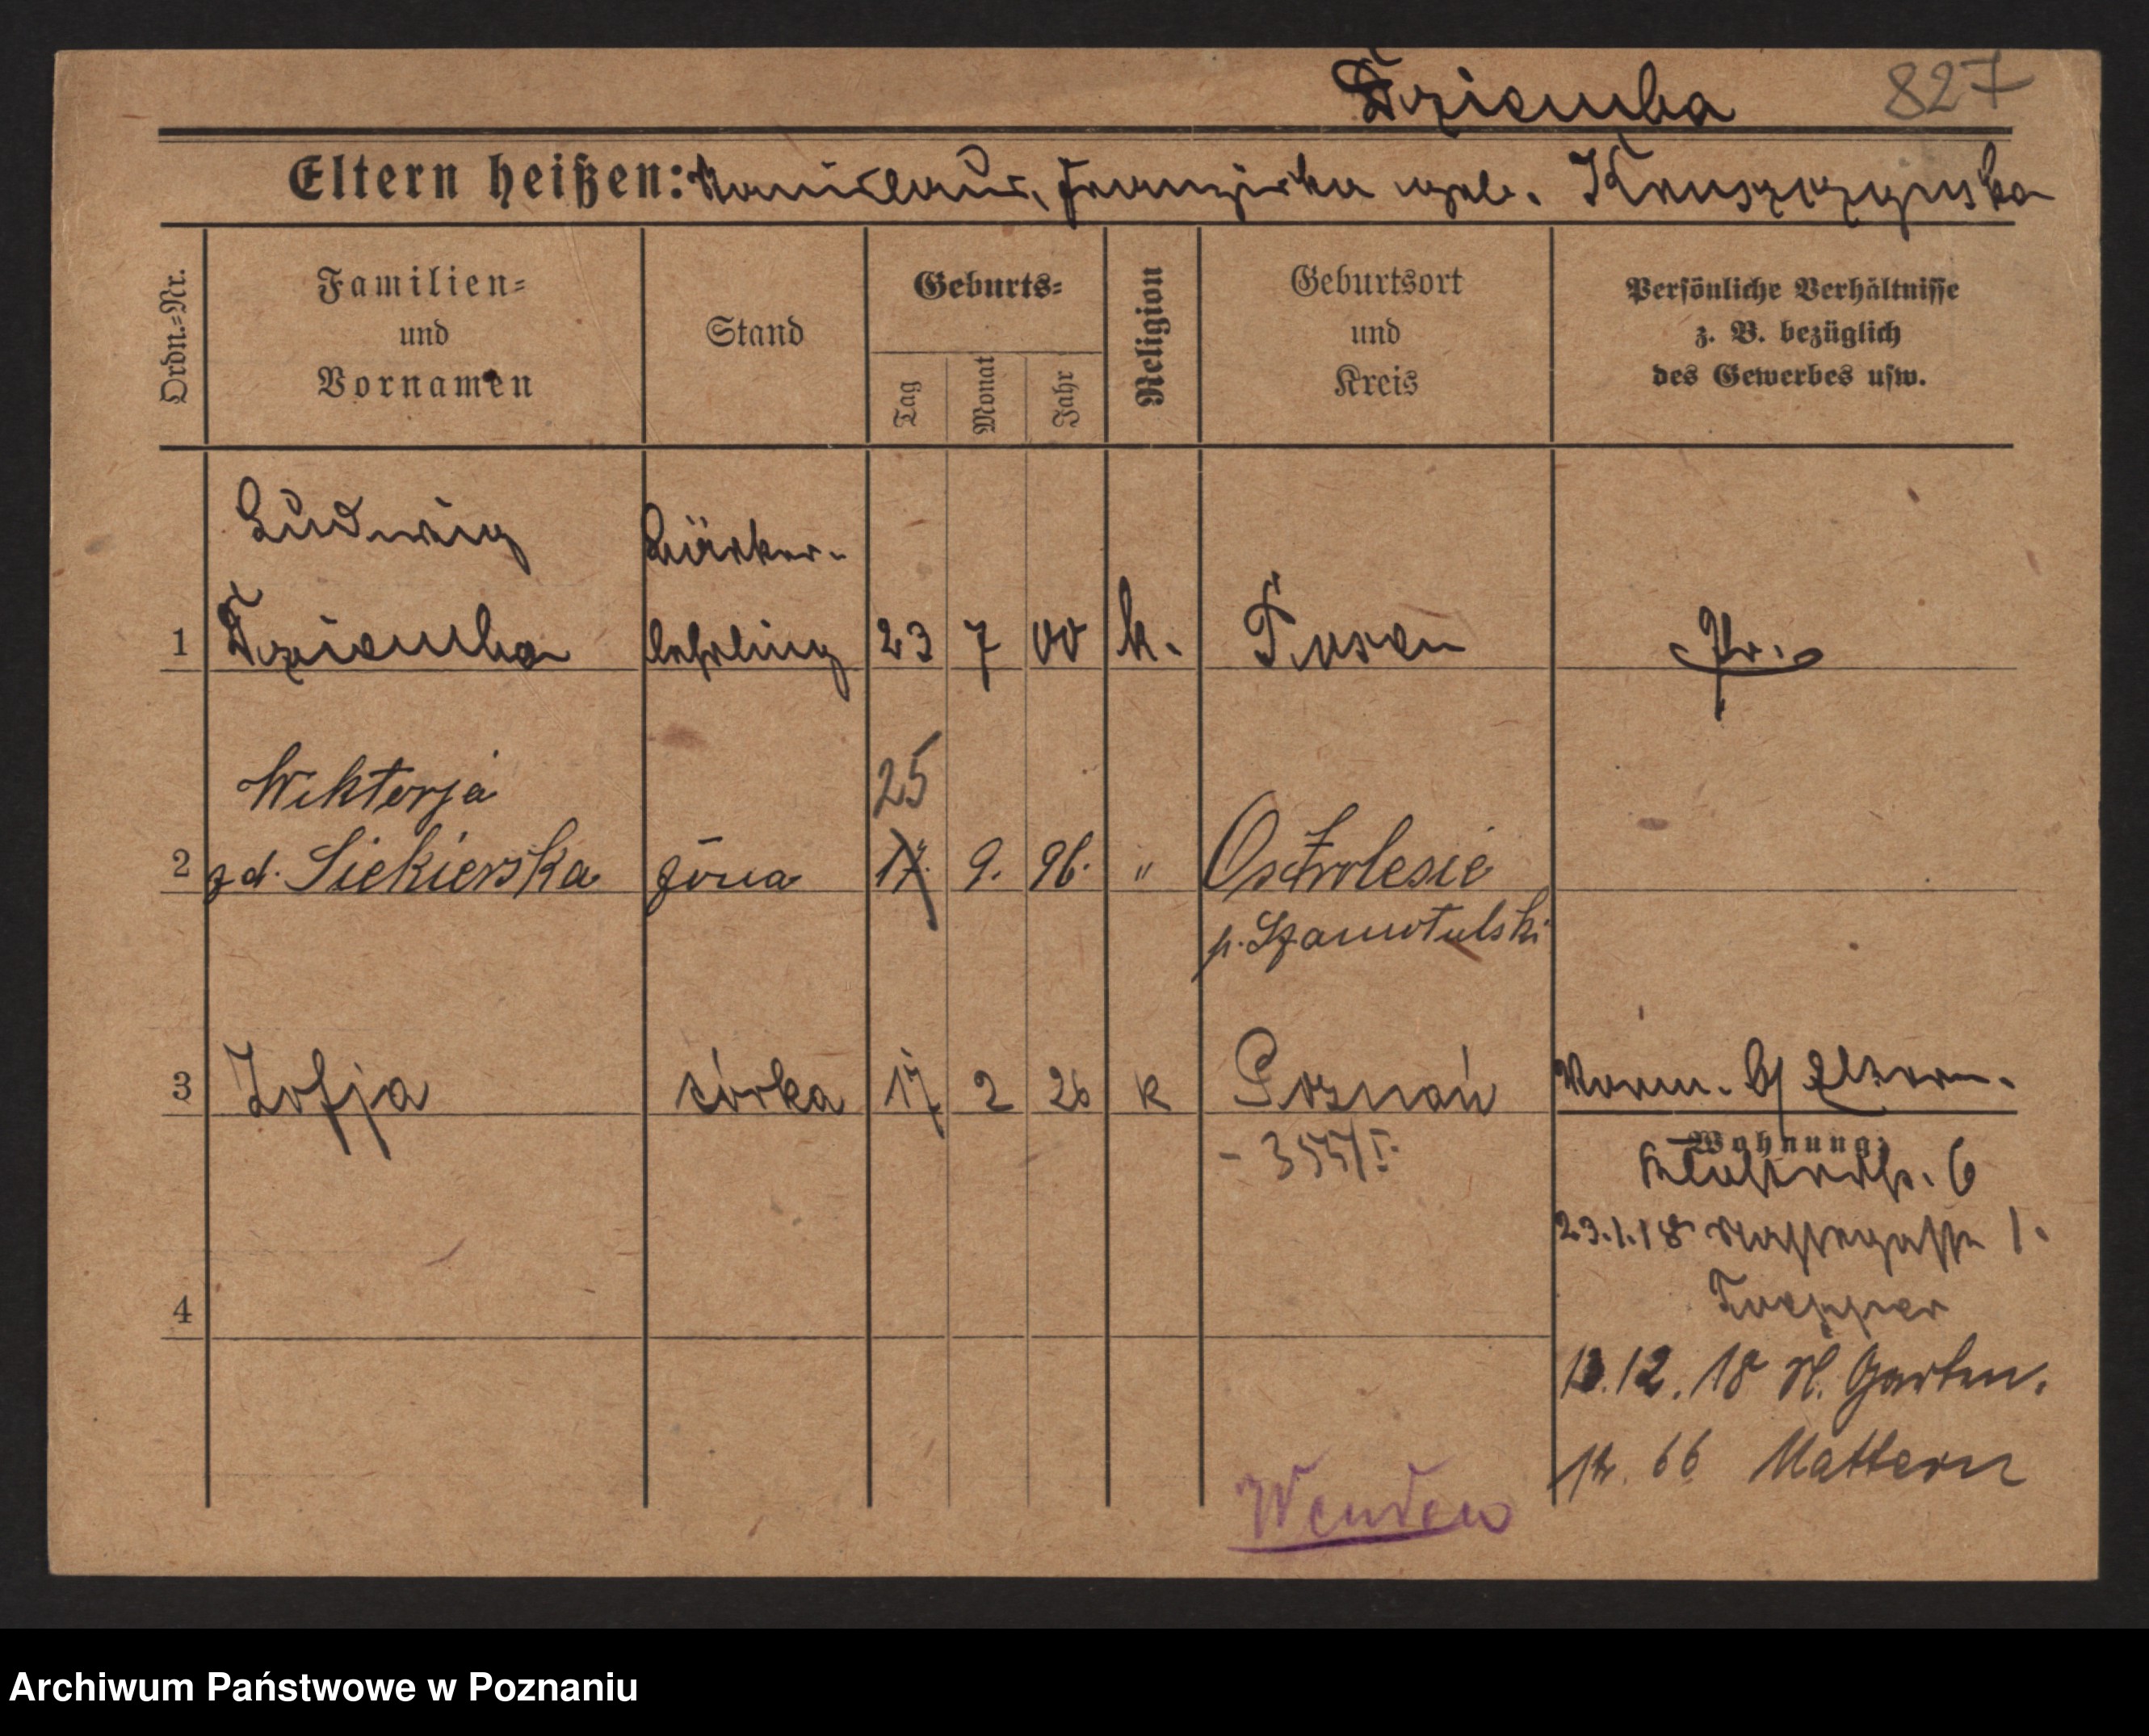 Dziemba 827
Eltern heißen: Stanislaus, Franziska geb. Kruszczynska
Ordn.=Nr.
Familien=
und
Vornamen
Stand
Geburts=
Tag
Monat
Jahr
Religion
Geburtsort
und
Kreis
Persönliche Verhältnisse
z. B. bezüglich
des Gewerbes usw.
Ludwig
Bäcker-
1 Dziemba lehrling 23 7 00 k. Posen Pr.
Wiktorja
25
2 zd. Siekierska żona 17. 9. 96. " Ostrolesie
p. Szamotulski
3 Zofja córka 17 2 26 k Poznań
Wohnung:
6
23.1.18 1.
4
13.12.18 Garten.
66 Mattern
Wenden
Archiwum Państwowe w Poznaniu